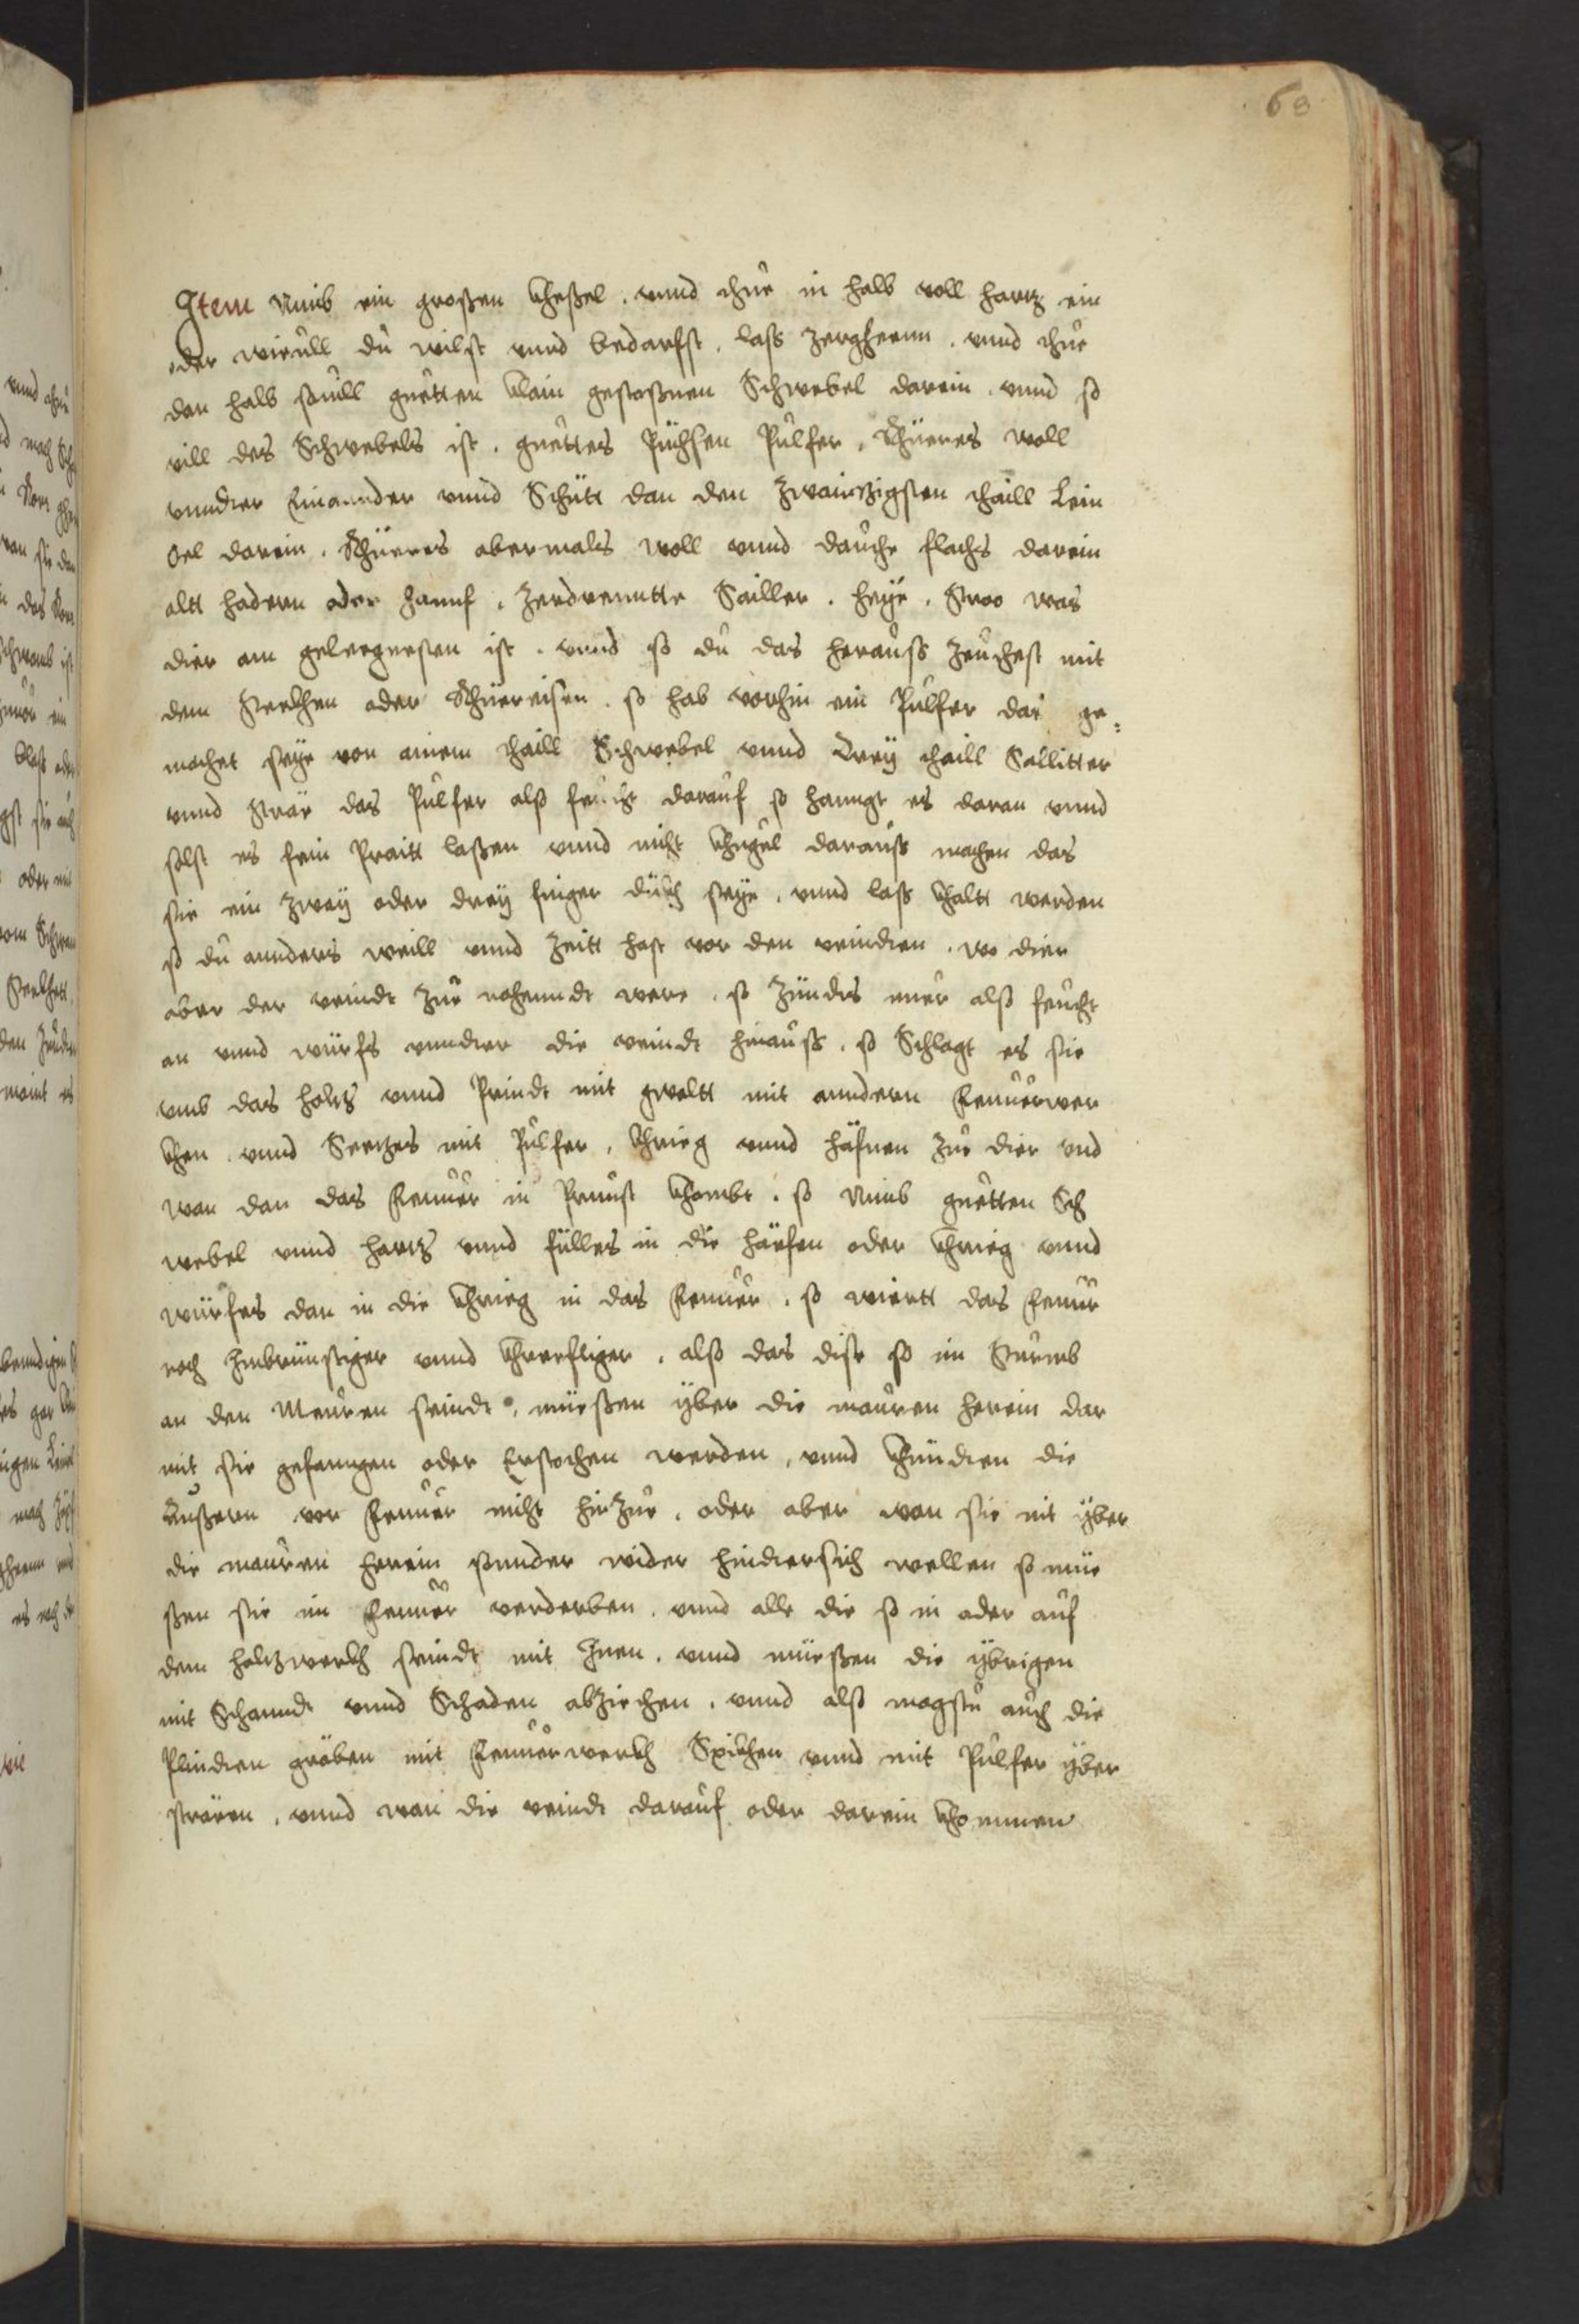 68
Item Nimb ein großen kheßel . vnnd thue in halb voll hartz ein
oder wieuill du wilst vnnd bedarfst . lass zergheenn . vnnd thue
dan halb souill guetten klain gestoßnen Schwebel darein . vnnd so
vill des Schwebels ist . guettes Püchsen Pulfer . Rhüeres woll
vnndter Einannder vnnd Schütt dan den zwainzigsten thaill Lein
oel darein . Rhüeres abermals woll vnnd dauche flachs darein
altt hadern oder hannf . zerdrenntte Sailler . heye . Stroo was
dier am gelegnesten ist . vnnd so du das herauss zeuchest mit
dem Stekhen oder Rhüereisen . so hab vorhin ein Pulfer das ge:
machet seye von ainem thaill Schwebel vnnd drey thaill Sallitter
vnnd Strär das Pulfer alss feucht darauf so hanngt es daran vnnd
solst es fein Praitt laßen vnnd nicht khugel darauss machen das
sie ein zwey oder drey finger dückh seye . vnnd lass khaltt werden
so du annders weill vnnd zeitt hast vor den veindten . wo dier
aber der veindt zue nahenndt were . so zündts nuer alss feucht
an vnnd würfs vnndter die veindt hinauss . so Schlagt es sie
vmb das holtz vnnd Prindt mit gwaltt mit anndern Feuuerwer
khen . vnnd Seetzes mit Pulfer . khrieg vnnd häfnen zue dier vnd
wan dan das Feuuer in Prunst khombt . so Nimb guetten Sch
webel vnnd hartz vnnd fülles in die häefen oder khrieg vnnd
würfes dan in die khrieg in das Feuuer . so wiertt das Feuur
noch Inbrünstiger vnnd khreeftiger . also das dise so im Sturmb
an den Mauren seindt . müeßen yber die mauren herein dar
mit sie gefanngen oder Erstochen werden . vnnd khündten die
Äußern vor Feuuer nicht hinzue . oder aber wan sie nit yber
die mauren herein sonnder wider hindtersich wellen so müe
ßen sie im Feuuer verderben . vnnd alle die so in oder auf
dem holtzwerkh seindt mit Inen . vnnd müeßen die ybrigen
mit Schanndt vnnd Schaden abziechen . vnnd alss magstu auch die
Plindten gräben mit Feuuerwerkh Spikhen vnnd mit Pulfer yber
strären . vnnd wan die veindt darauf oder darein khommen